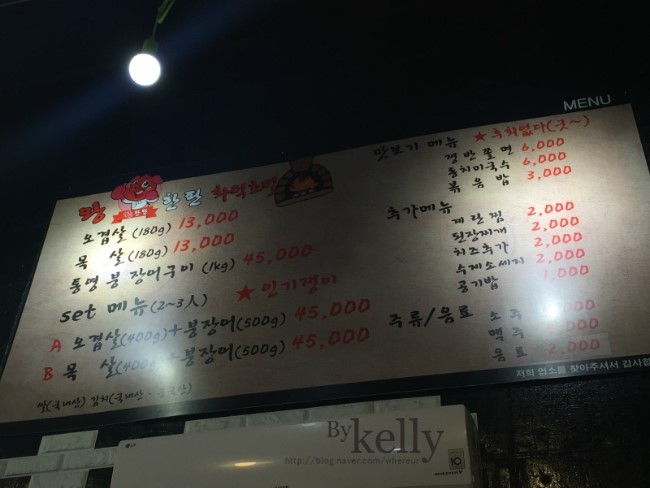 MENU
짱 한판 화덕초벌
오겹살 (180g) 13,000
목 살 (180g) 13,000
통영 붕장어구이 (1kg) 45,000
set 메뉴 (2~3人) ★ 인기쟁이
A 오겹살(400g)+붕장어(500g) 45,000
B 목 살(400g)+붕장어(500g) 45,000
쌀(국내산) 김치(국내산
맛보기 메뉴 ★ 후회없다(굿~)
쟁반쫄면 6,000
동치미국수 6,000
볶음밥 3,000
추가메뉴
계란찜 2,000
된장찌개 2,000
치즈추가 2,000
수제소세지 2,000
공기밥 1,000
주류/음료 소주
맥주
음료 2,000
저희 업소를 찾아주셔서 감사합
LG
By kelly
http://blog.naver.com/whereur
10